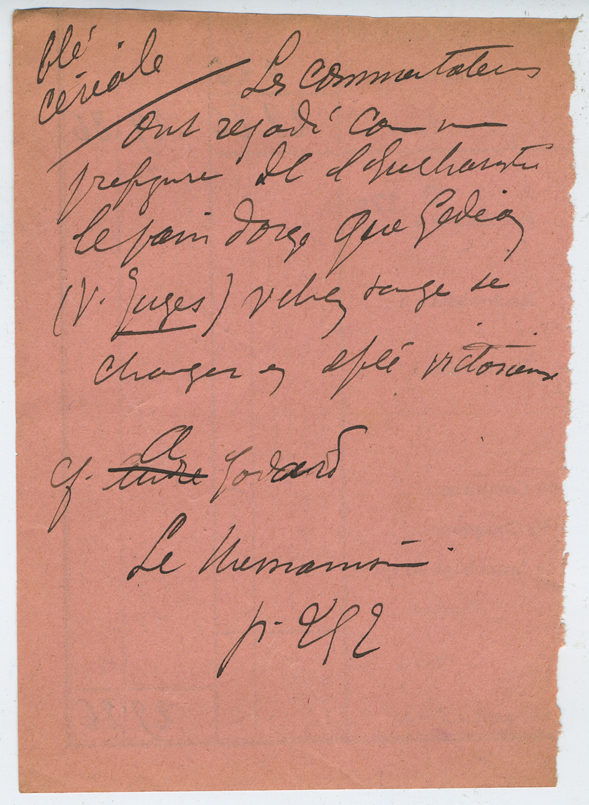 blé
céréale
Les commentateurs
ont regardé comme
prefigure de l'Eucharistie
le pain d'orge que Gedeon
(V. Juges) vit en songe se
changer en épée victorieuse
cf. A Godard
Le Messianisme
p.